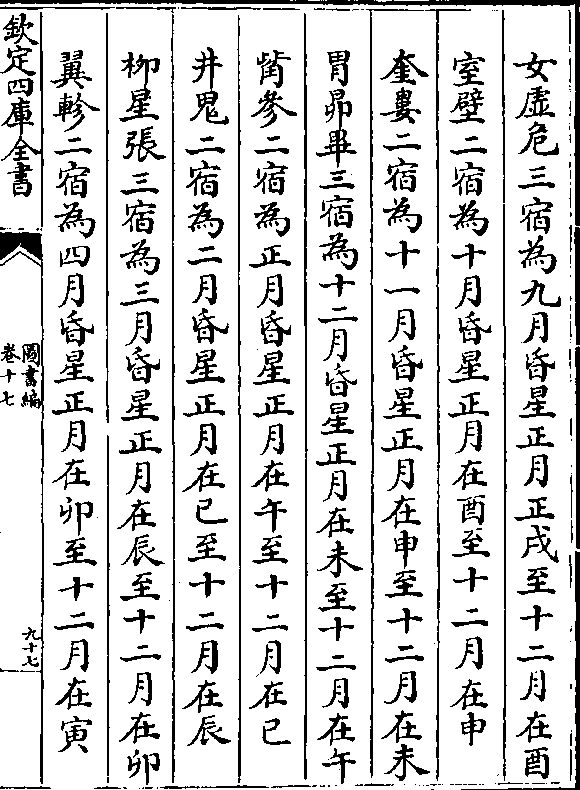 女虛危三宿為九月昏星正月正戌至十二月在酉
室壁二宿為十月昏星正月在酉至十二月在申
奎婁二宿為十一月昏星正月在申至十二月在未
胃昴畢三宿為十二月昏星正月在未至十二月在午
觜參二宿為正月昏星正月在午至十二月在巳
井鬼二宿為二月昏星正月在巳至十二月在辰
柳星張三宿為三月昏星正月在辰至十二月在卯
翼軫二宿為四月昏星正月在卯至十二月在寅
欽定四庫全書
圖書編
卷十七
九十七